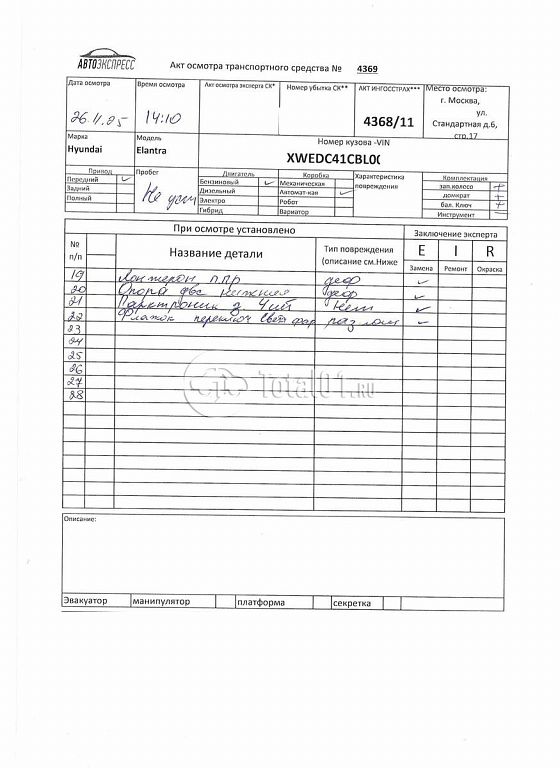 АВТОЭКСПРЕСС
Акт осмотра транспортного средства № 4369
Дата осмотра
Время осмотра
Акт осмотра эксперта СК*
Номер убытка СК**
АКТ ИНГОССТРАХ***
Место осмотра:
г. Москва,
ул.
Стандартная д.6,
стр.17
26.11.25
14:10
4368/11
Марка
Модель
Номер кузова -VIN
Hyundai
Elantra
XWEDC41CBL0
Привод
Пробег
Двигатель
Коробка
Характеристика повреждения
Комплектация
Передний
Бензиновый
Механическая
зап.колесо +
Задний
Дизельный
Автомат-кая
домкрат +
Полный
Электро
Робот
бал. Ключ +
Гибрид
Вариатор
Инструмент –
Не уст
При осмотре установлено
Заключение эксперта
№ п/п
Название детали
Тип повреждения (описание см.Ниже
E I R
Замена Ремонт Окраска
19 Лонжерон п.пр деф
20 Опора двс нижняя деф
21 Парктроник з. 4шт Нет
22 Флажок переключ света фар разлом
23
24
25
26
27
28
Total01.RU
Описание:
Эвакуатор
манипулятор
платформа
секретка